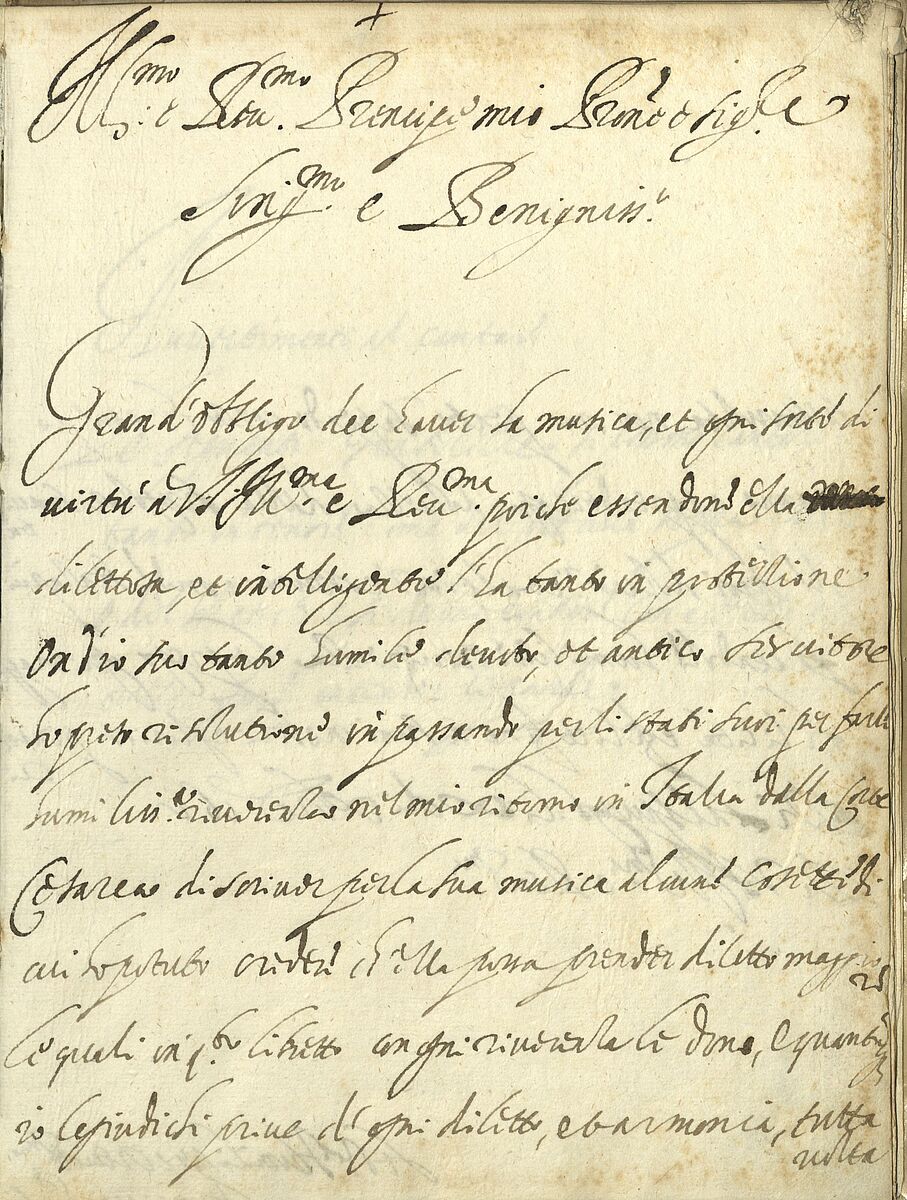 Ill.mo e Reu.mo Prencipe mio Prone e Sig.re
Sing.mo e Benigniss.o
Grand' obbligo dee hauer la musica, et ogni sorte di
virtù à V. S. Ill.ma e Reu.ma poiche essendone ella
dilettosa, et intelligente l'ha tanto in protettione
Ond'io suo tanto humile deuoto, et antico seruitore
ho preso risolutione in passando per li stati suoi per farle
humiliss.a riuerenza nel mio ritorno in Italia dalla Corte
Cesarea di scriuer per la sua musica alcune cosette di
cui ho potuto credere ch'ella possa prender diletto maggio
re
le quali in q.to libretto con ogni riuerenza le dono, e quantu
q
io le giudichi priue d'ogni diletto, et armonia, tutta
uolta